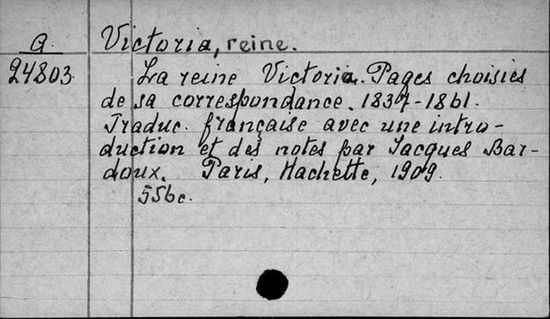 a Victoria, reine.
24803 La reine Victoria. Pages choisies
de sa correspondance. 1837-1861.
Traduc. française avec une intro-
duction et des notes par Jacques Bar-
doux. Paris, Hachette, 1909.
556c.